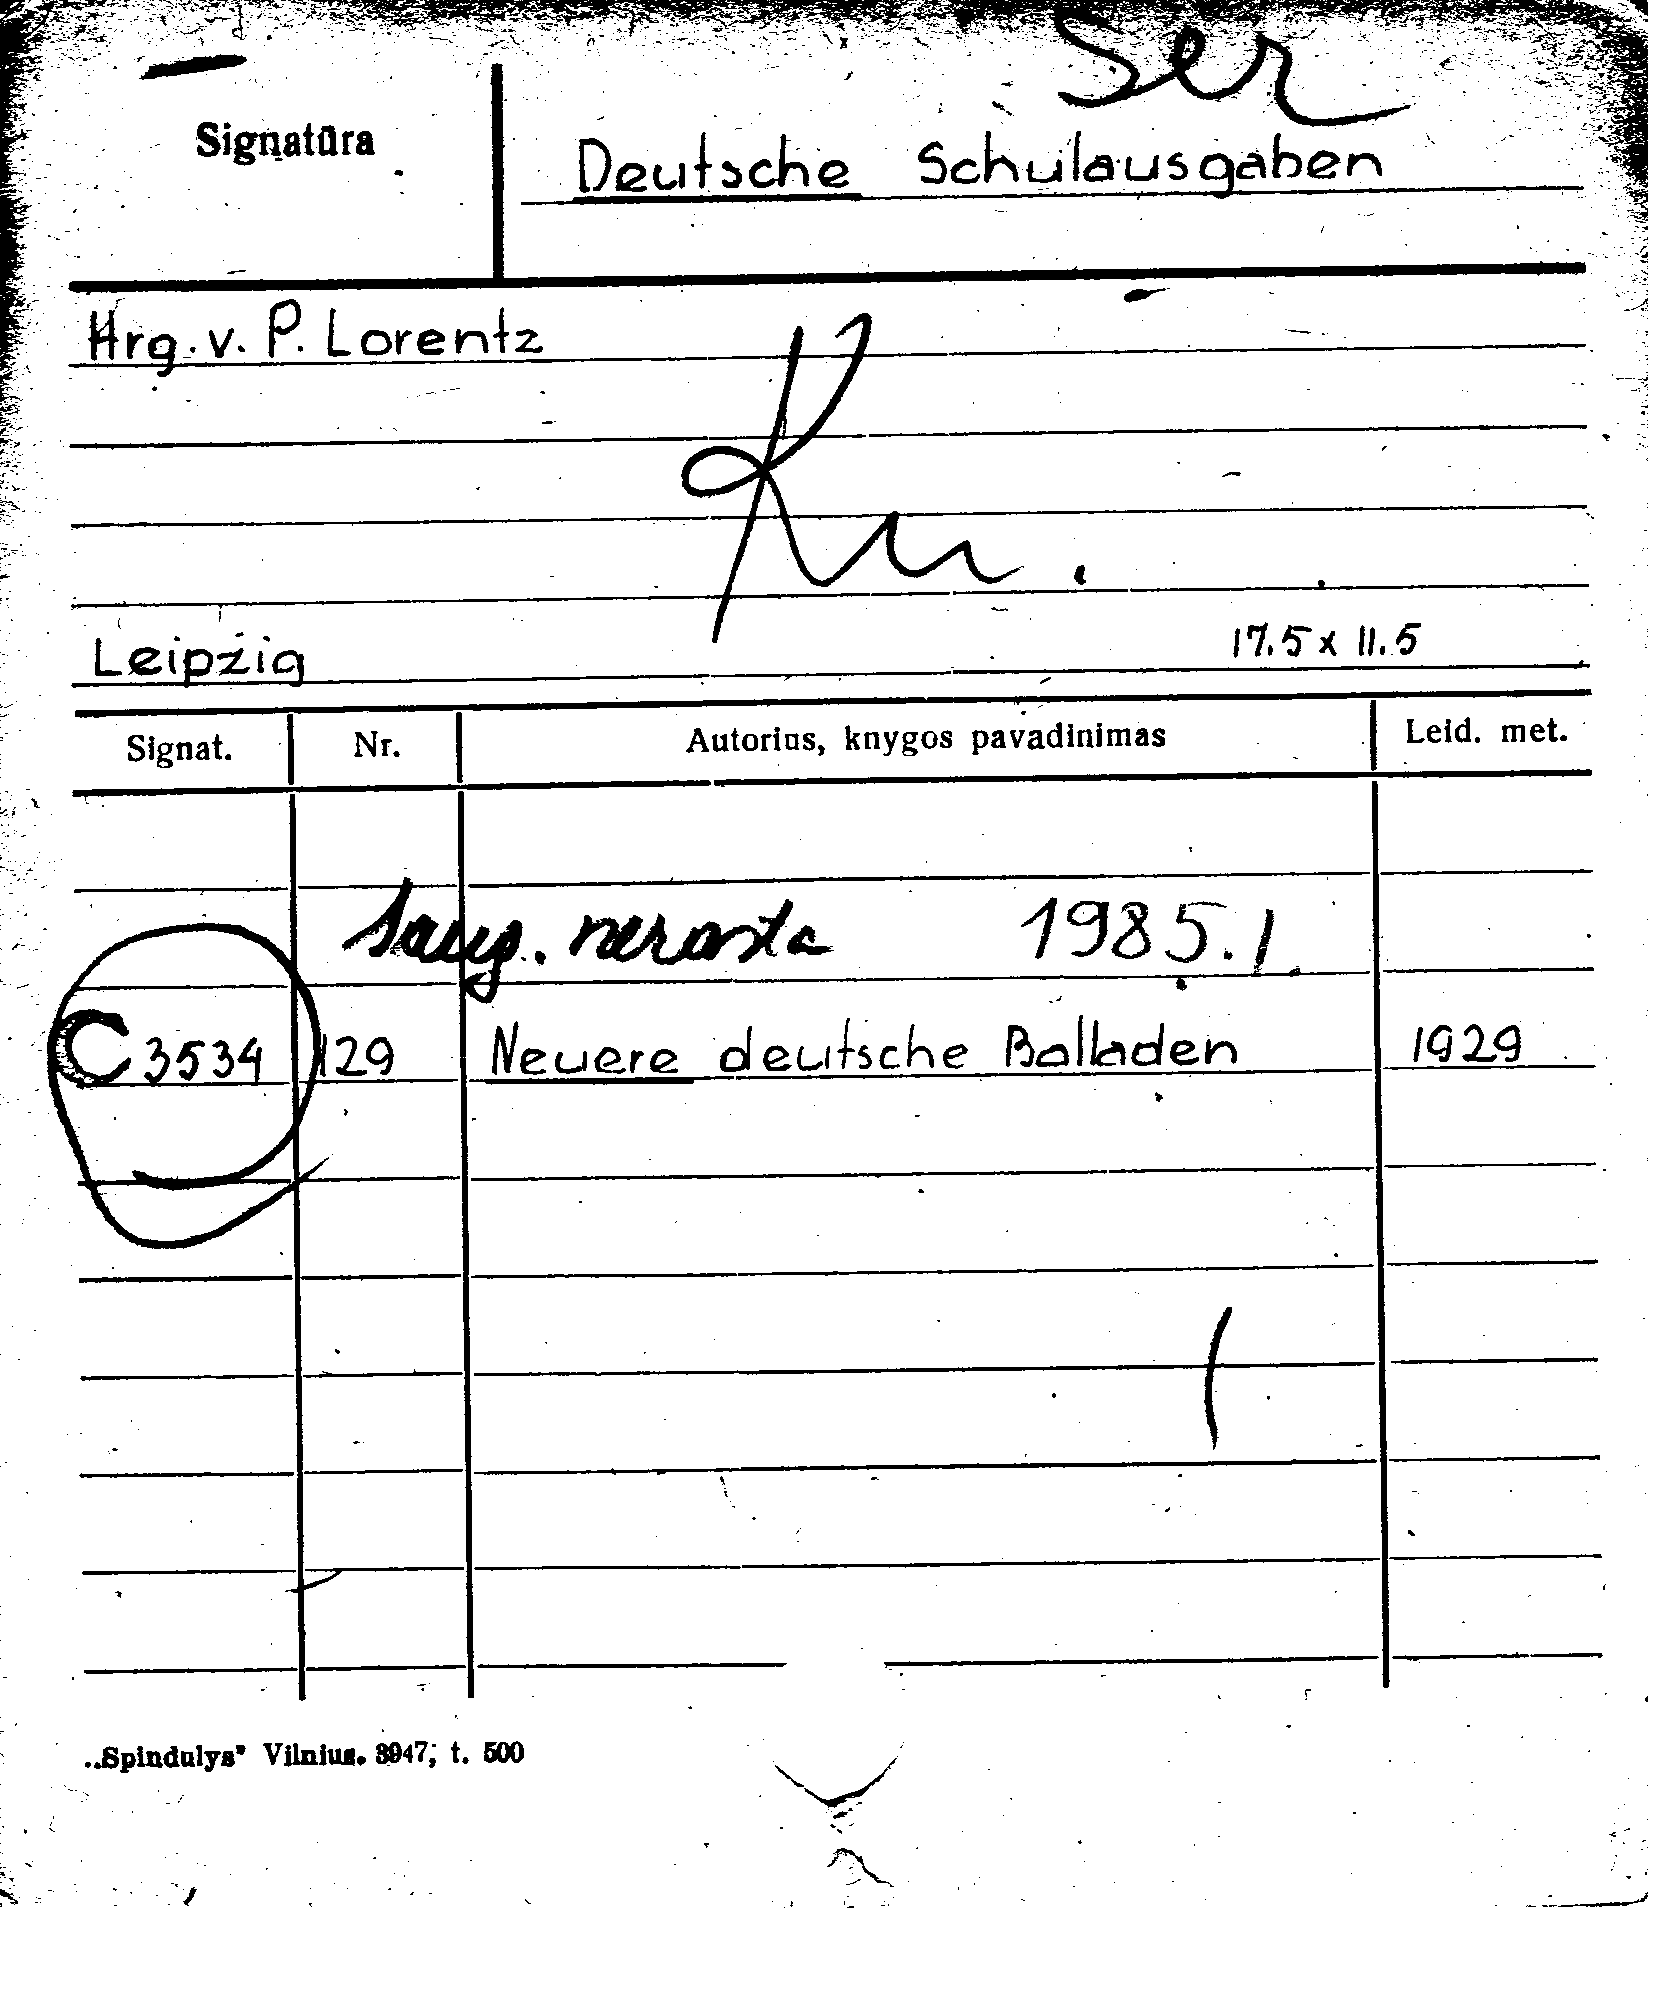 Ser
Signatūra
Deutsche Schulausgaben
Hrg. v. P. Lorentz
Kn.
Leipzig 17.5 x 11.5
Signat. Nr. Autorius, knygos pavadinimas Leid. met.
Saug. nerasta 1985.1.
C 3534 129 Neuere deutsche Balladen 1929
„Spindulys" Vilnius. 3947; t. 500